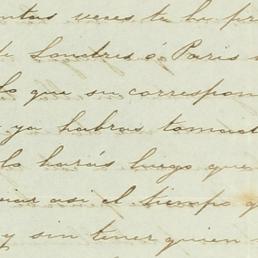 ntas veces te he pr
Londres ó Paris
lo que su correspon
ya habras tomad
lo harás luego que
iar asi el tiempo q
y sin tener quien